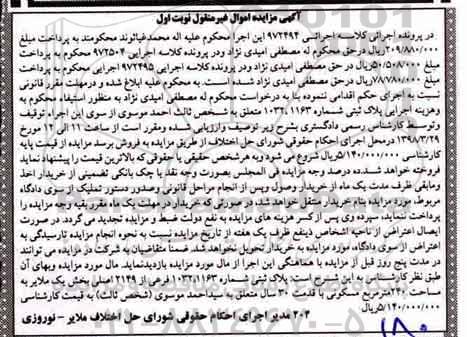 آگهی مزایده اموال غیرمنقول نوبت اول
در پرونده اجرائی کلاسه اجرائی ۹۷۲۴۹۴ این اجرا محکوم علیه اله محمد ضیائوند محکومند به پرداخت مبلغ
۲۰۹/۸۸۰/۰۰۰ریال درحق محکوم له مصطفی امیدی نژاد ودر پرونده کلاسه اجرایی ۹۷۲۵۰۴ محکوم به پرداخت
مبلغ ۵۰/۵۰۸/۰۰۰ریال در حق مصطفی امیدی نژاد ودر پرونده کلاسه اجرایی ۹۷۲۴۹۵ اجرایی محکوم به پرداخت
مبلغ ۷۸/۷۸۰/۰۰۰ ریال درحق مصطفی امیدی نژاد شده است. به محکوم علیه ابلاغ شده و درمهلت مقرر قانونی
نسبت به اجرای حکم اقدامی ننموده بنا به درخواست محکوم له مصطفی امیدی نژاد به منظور استیفاء محکوم به
وهزینه اجرایی پلاک ثبتی شماره ۱۰۳۲،۱۱۶۳ متعلق به شخص ثالث احمد موسوی از سوی این اجراء توقیف
وتوسط کارشناس رسمی دادگستری بشرح زیر توصیف وارزیابی شده ومقرر است از ساعت ۱۱ الی ۱۲ مورخ
۱۳۹۸/۳/۲۹ درمحل اجرای احکام حقوقی شورای حل اختلاف از طریق مزایده به فروش برسد مزایده از قیمت پایه
کارشناسی ۵/۱۴۰/۰۰۰/۰۰۰ریال شروع می شود وبه هرشخص حقیقی یا حقوقی که بالاترین قیمت را پیشنهاد نماید
فروخته خواهد شد.ده درصد وجه مزایده فی المجلس بصورت وجه نقد یا چک بانکی تضمینی از خریدار اخذ
ومابقی ظرف مدت یک ماه از خریدار وصول وپس از انجام مراحل قانونی وصدور دستور تملیک از سوی دادگاه
مربوط، مورد مزایده بنام خریدار منتقل خواهد شد، در صورتی که خریدار در مهلت یک ماه مقرر بقیه وجه مزایده را
پرداخت ننماید، سپرده وی پس از کسر هزینه های مزایده به نفع دولت ضبط و مزایده تجدید می گردد. در صورت
ایصال اعتراض از ناحیه اشخاص ذینفع ظرف یک هفته از تاریخ مزایده نسبت به نحوه انجام مزایده تارسیدگی به
اعتراض از سوی دادگاه، مورد مزایده به خریدار تحویل نخواهد شد. ضمنا متقاضیان به شرکت در مزایده می توانند
در مدت پنج روز قبل از مزایده با هماهنگی این اجرا از مال مورد مزایده بازدیدنماید. مال مورد مزایده وبهای آن
طبق نظر کارشناس به این شرح است: پلاک ثبتی شماره ۱۰۳۲،۱۱۶۳ فرعی از ۲۱۴۹ اصلی بخش یک ملایر به
مساحت ۲۴۰مترمربع مسکونی با قدمت ۳۰ سال متعلق به سیداحمد موسوی (شخص ثالث) به قیمت کارشناسی
۵/۱۴۰/۰۰۰/۰۰۰ریال
۲۰۴ مدیر اجرای احکام حقوقی شورای حل اختلاف ملایر - نوروزی